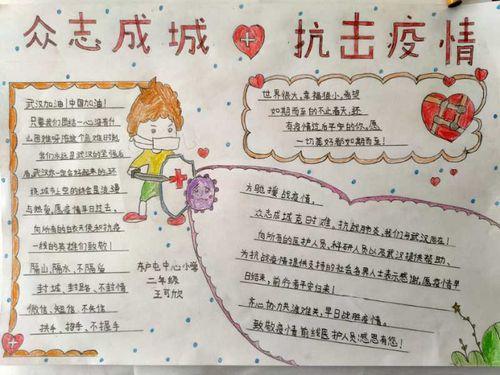 众志成城 抗击疫情
武汉加油!中国加油!
只要我们团结一心没有什
么困难呼
我们永远是武汉的坚强后
盾,武汉你一定会好起来的,环
绕城市上空的结会是浪漫
与热爱,愿疫情早日过去,
向所有的白衣天使和抗疫
一线的英雄们致敬!
隔山,隔水,不隔爱
封城,封路,不封情
微信,短信,不失信
拱手,招手,不握手
东户屯中心小学
二年级
王可欣
世界很大,幸福很小,希望
如期而至的不止春天,还
有疫情过后平安的你,愿
一切美好都如期而至!
为驰援战疫情,
众志成城克时难,抗战肺炎,我们与武汉同在!
向所有的医护人员,科研人员以及武汉提供帮助,
为抗战疫情提供支持的社会各界人士表示感谢,愿疫情早
日结束,前行者平安归来!
齐心协力共渡难关,早日战胜疫情。
致敬疫情前线医护人员!感恩有您!